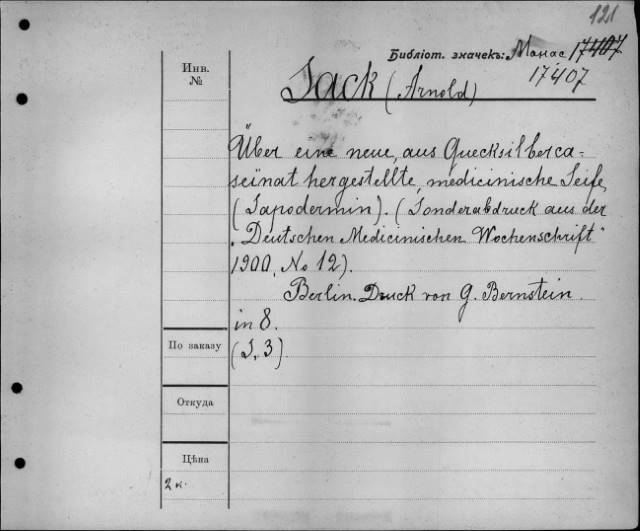 121
Библіот. значекъ: Манас 17407
17407
Инв.
№
Sack (Arnold)
Über eine neue, aus Quecksilberca-
seïnat hergestellte, medicinische Seife,
(Sapodermin). (Sonderabdruck aus der
„Deutschen Medicinischen Wochenschrift"
1900, No 12).
Berlin. Druck von G. Bernstein.
in 8.
(S. 3).
По заказу
Откуда
Цѣна
2 к.